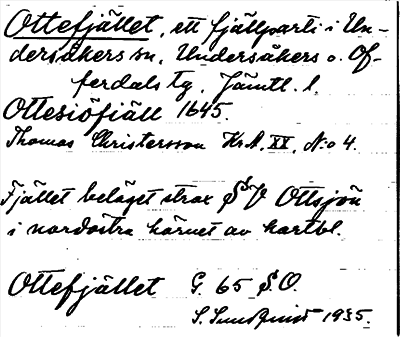 Ottefjället, ett fjällparti i Un-
dersåkers sn, Undersåkers o. Of-
ferdals tg, Jämtl. l.
Ottesiöfiäll 1645.
Thomas Christersson Kr.A. XX, N:o 4.
Fjället beläget strax S V Ottsjön
i nordöstra hörnet av kartbl.
Ottefjället G. 65 S.O.
S. Sundqvist 1935.